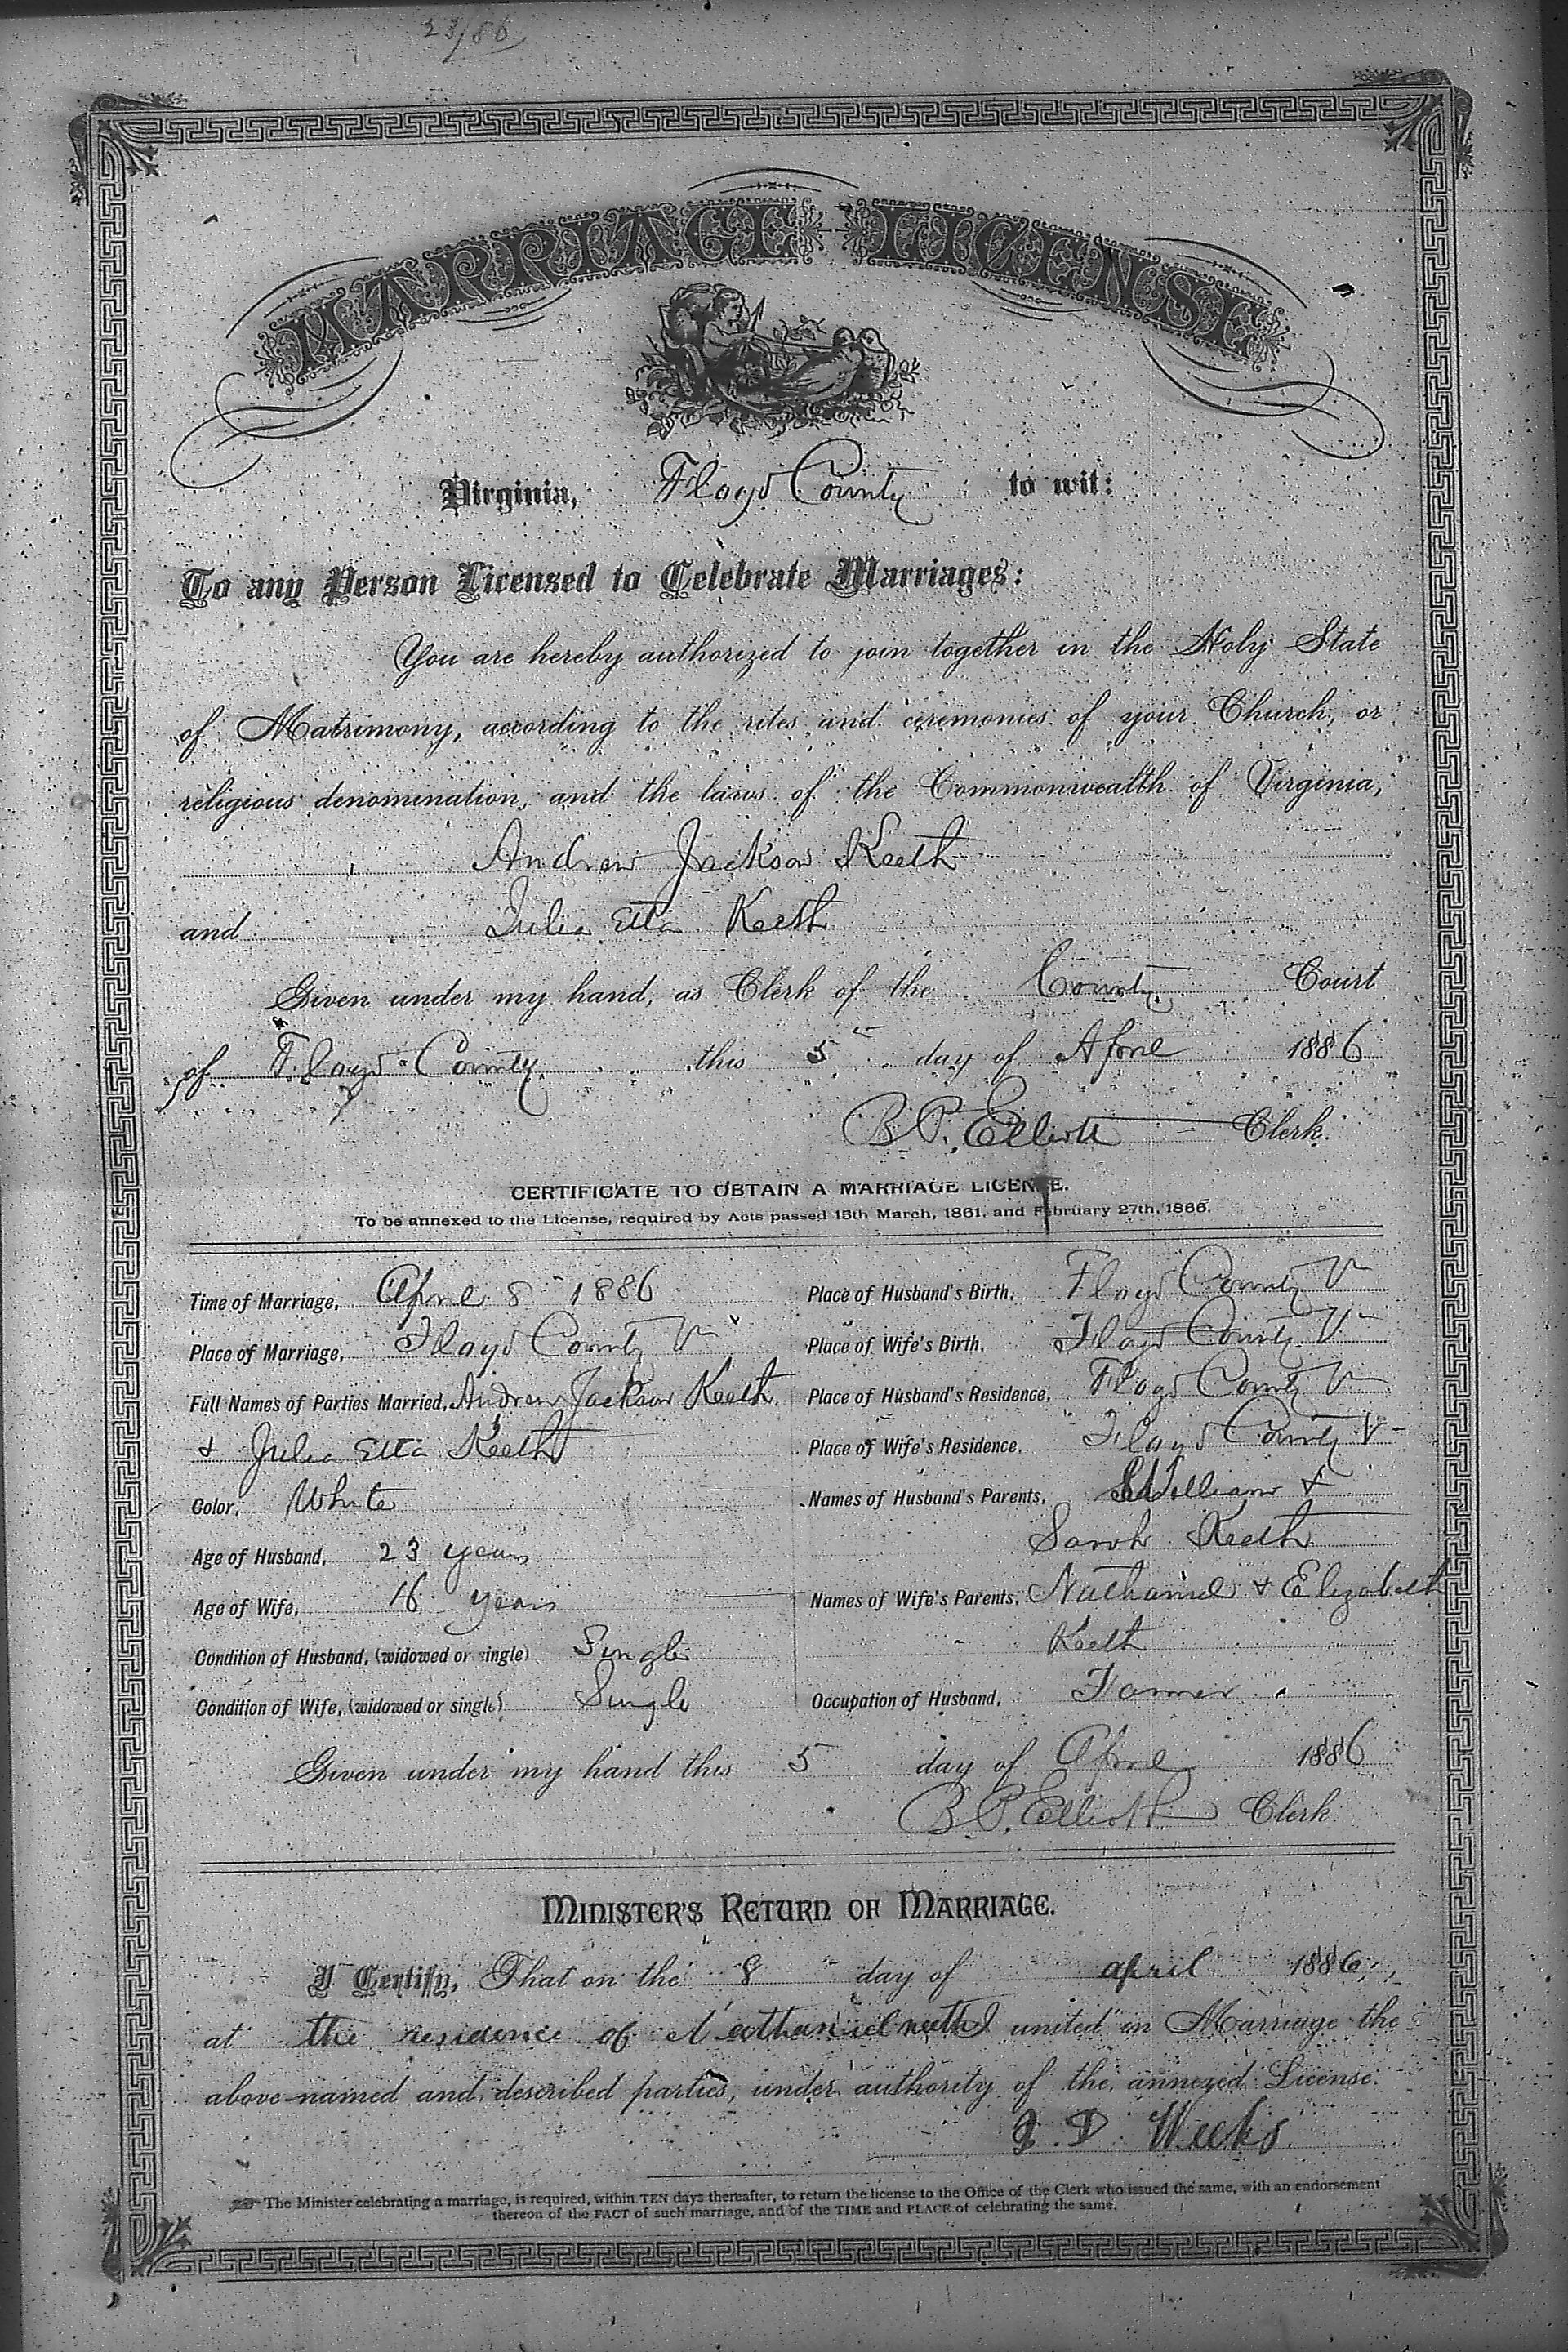 23/86
MARRIAGE LICENSE
Virginia, Floyd County to wit:
To any Person Licensed to Celebrate Marriages:
You are hereby authorized to join together in the Holy State
of Matrimony, according to the rites and ceremonies of your Church, or
religious denomination, and the laws of the Commonwealth of Virginia,
Andrew Jackson Keeth
and Julia Etta Keeth
Given under my hand, as Clerk of the County Court
of Floyd County this 5 day of April 1886
B. P. Elliott Clerk.
CERTIFICATE TO OBTAIN A MARRIAGE LICENSE.
To be annexed to the License, required by Acts passed 15th March, 1861, and February 27th, 1866.
Time of Marriage, April 8 1886
Place of Marriage, Floyd County Va
Full Names of Parties Married, Andrew Jackson Keeth
+ Julia Etta Keeth
Color, White
Age of Husband, 23 years
Age of Wife, 16 years
Condition of Husband, (widowed or single) Single
Condition of Wife, (widowed or single) Single
Place of Husband's Birth, Floyd County Va
Place of Wife's Birth, Floyd County Va
Place of Husband's Residence, Floyd County Va
Place of Wife's Residence, Floyd County Va
Names of Husband's Parents, William +
Sarah Keeth
Names of Wife's Parents, Nathaniel + Elizabeth
Keeth
Occupation of Husband, Farmer
Given under my hand this 5 day of April 1886
B. P. Elliott Clerk.
MINISTER'S RETURN OF MARRIAGE.
I Certify, That on the 8 day of april 1886,
at the residence of Nathaniel I united in Marriage the
above-named and described parties, under authority of the annexed License.
J. D. Weeks
The Minister celebrating a marriage, is required, within TEN days thereafter, to return the license to the Office of the Clerk who issued the same, with an endorsement
thereon of the FACT of such marriage, and of the TIME and PLACE of celebrating the same.